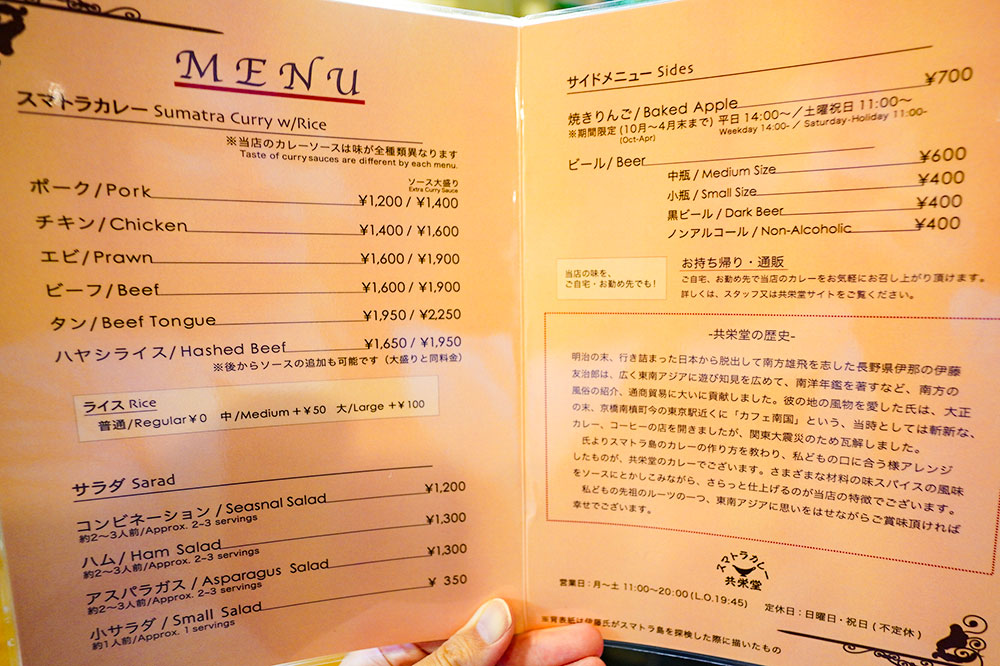 MENU
スマトラカレー Sumatra Curry w/Rice
※当店のカレーソースは味が全種類異なります
Taste of curry sauces are different by each menu.
ソース大盛り
Extra Curry Sauce
ポーク/Pork ¥1,200 / ¥1,400
チキン/Chicken ¥1,400 / ¥1,600
エビ/Prawn ¥1,600 / ¥1,900
ビーフ/Beef ¥1,600 / ¥1,900
タン/Beef Tongue ¥1,950 / ¥2,250
ハヤシライス/Hashed Beef ¥1,650 / ¥1,950
※後からソースの追加も可能です（大盛りと同料金）
ライス Rice
普通/Regular¥0 中/Medium+¥50 大/Large+¥100
サラダ Sarad
コンビネーション / Seasnal Salad ¥1,200
約2~3人前/Approx. 2-3 servings
ハム / Ham Salad ¥1,300
約2~3人前/Approx. 2-3 servings
アスパラガス / Asparagus Salad ¥1,300
約2~3人前/Approx. 2-3 servings
小サラダ / Small Salad ¥ 350
約1人前/Approx. 1 servings
サイドメニュー Sides
焼きりんご/Baked Apple ¥700
※期間限定 (10月~4月末まで) 平日 14:00~／土曜祝日 11:00~
(Oct-Apr) Weekday 14:00-／Saturday・Holiday 11:00-
ビール/Beer
中瓶 / Medium Size ¥600
小瓶 / Small Size ¥400
黒ビール / Dark Beer ¥400
ノンアルコール / Non-Alcoholic ¥400
当店の味を、
ご自宅・お勤め先でも!
お持ち帰り・通販
ご自宅、お勤め先で当店のカレーをお気軽にお召し上がり頂けます。
詳しくは、スタッフ又は共栄堂サイトをご覧ください。
-共栄堂の歴史-
明治の末、行き詰まった日本から脱出して南方雄飛を志した長野県伊那の伊藤
友治郎は、広く東南アジアに遊び知見を広めて、南洋年鑑を著すなど、南方の
風俗の紹介、通商貿易に大いに貢献しました。彼の地の風物を愛した氏は、大正
の末、京橋南槇町今の東京駅近くに「カフェ南国」という、当時としては斬新な、
カレー、コーヒーの店を開きましたが、関東大震災のため瓦解しました。
氏よりスマトラ島のカレーの作り方を教わり、私どもの口に合う様アレンジ
したものが、共栄堂のカレーでございます。さまざまな材料の味スパイスの風味
をソースにとかしこみながら、さらっと仕上げるのが当店の特徴でございます。
私どもの先祖のルーツの一つ、東南アジアに思いをはせながらご賞味頂ければ
幸せでございます。
スマトラカレー
共栄堂
営業日：月~土 11:00~20:00 (L.O.19:45) 定休日：日曜日・祝日 (不定休)
※背表紙は伊藤氏がスマトラ島を探検した際に描いたもの